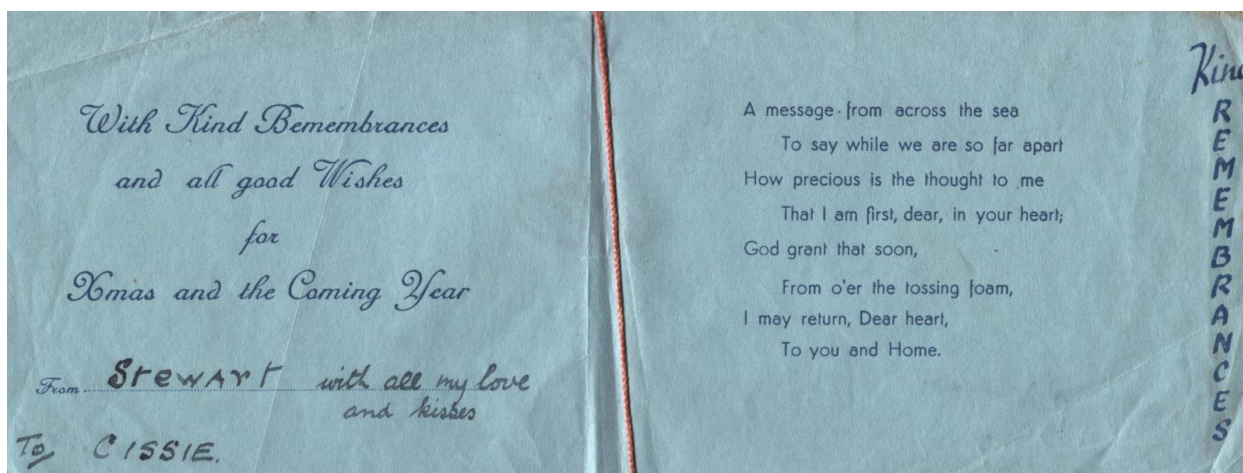 With Kind Remembrances
and all good Wishes
for
Xmas and the Coming Year
From Stewart with all my love
and kisses
To CISSIE.
A message from across the sea
To say while we are so far apart
How precious is the thought to me
That I am first, dear, in your heart;
God grant that soon,
From o'er the tossing foam,
I may return, Dear heart,
To you and Home.
Kind
REMEMBRANCES